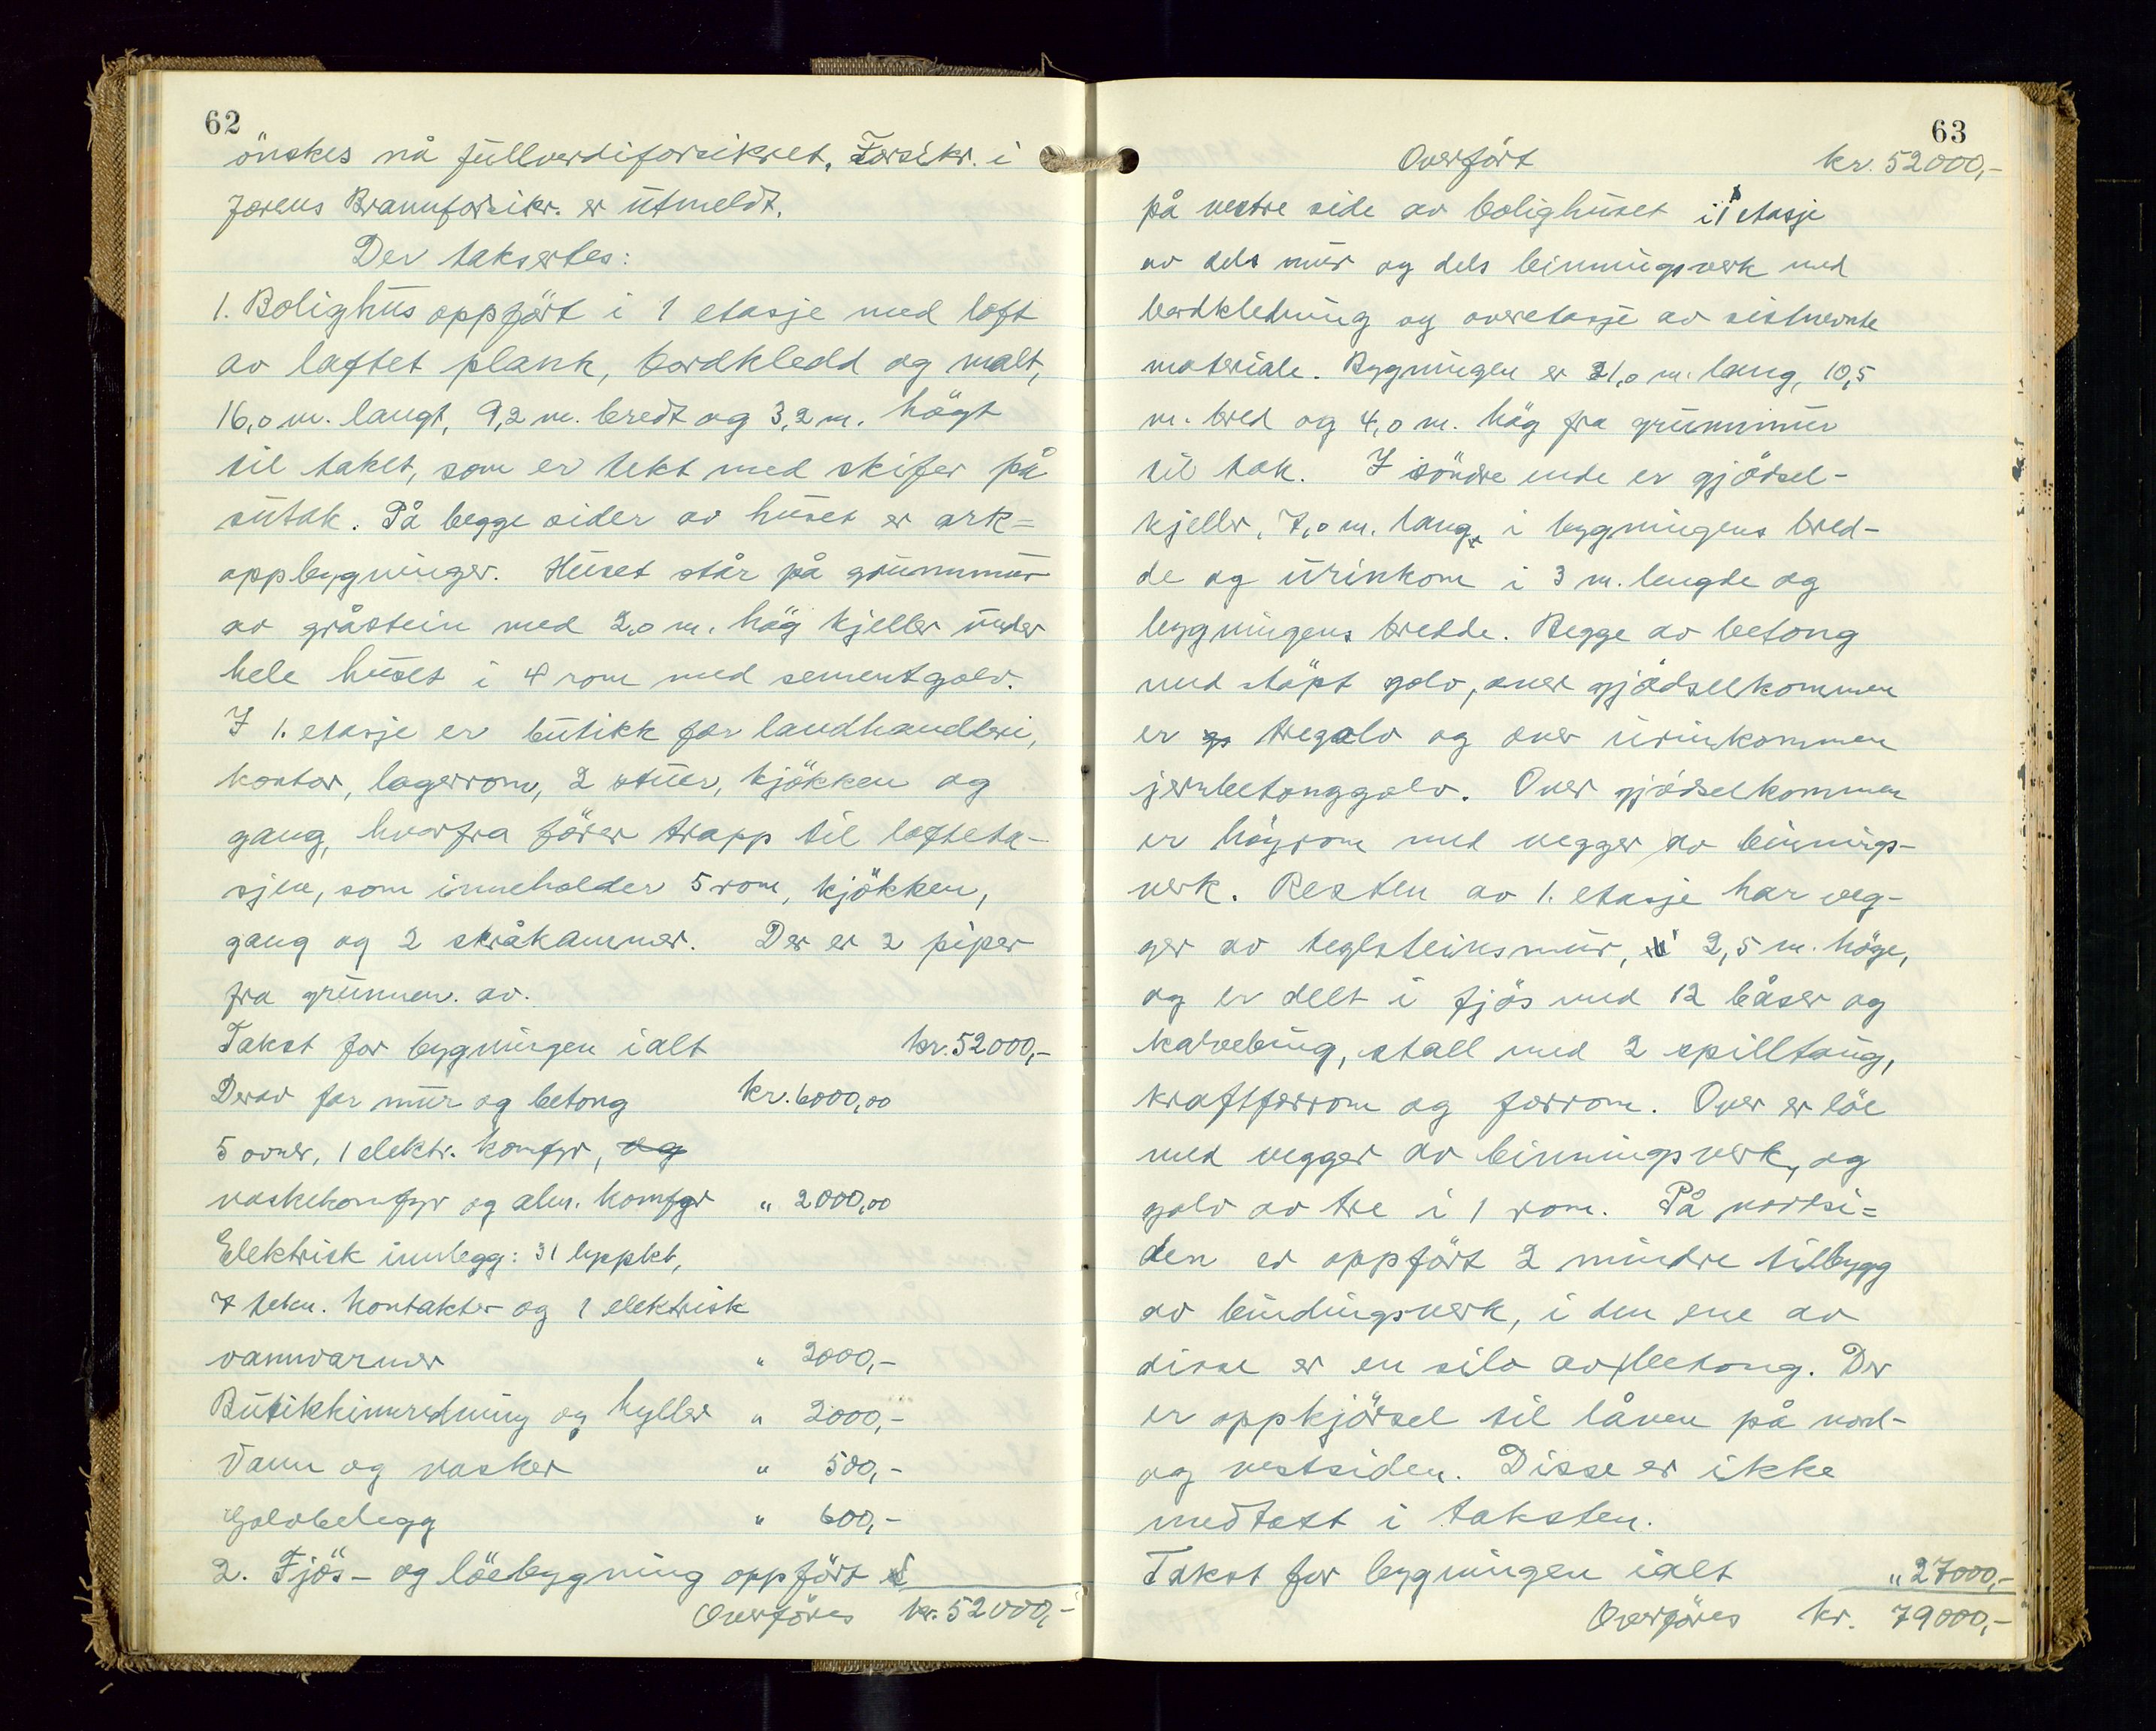 62
önskes nå fullverdiforsikret. Forsikr. i
Jærens Brannforsikr. er utmeldt.
Der taksertes:
1. Bolighus oppfört i 1 etasje med loft
av laftet plank, bordkledd og malt,
16,0 m. langt, 9,2 m. bredt og 3,2 m. högt
til taket, som er tekt med skifer på
sutak. På begge sider av huset er ark=
oppbygninger. Huset står på grunnmur
av gråstein med 2,0 m. hög kjeller under
hele huset i 4 rom med sementgolv.
I 1. etasje er butikk for landhandleri,
kontor, lagerrom, 2 stuer, kjökken og
gang, hvorfra förer trapp til lofteta-
sjen, som inneholder 5 rom, kjökken,
gang og 2 skråkammer. Der er 2 piper
fra grunnen. av.
Takst for bygningen ialt kr. 52000,-
Derav for mur og betong kr. 6000,00
5 ovner, 1 elektr. komfyr, og
vaskekomfyr og alm. komfyr " 2000,00
Elektrisk innlegg: 31 lyspkt,
7 tekn. kontakter og 1 elektrisk
vannvarmer " 2000,-
Butikkinnredning og hyller " 2000,-
Vann og vasker " 500,-
Golvbelegg " 600,-
2. Fjös- og löebygning oppfört
Overföres kr. 52000,-
63
Overfört kr. 52000,-
på vestre side av bolighuset i 1 etasje
av dels mur og dels binningsverk med
bordkledning og overetasje av sistnevnte
materiale. Bygningen er 21,0 m. lang, 10,5
m. bred og 4,0 m. hög fra grunnmur
til tak. I söndre ende er gjödsel-
kjeller, 7,0 m. lang, i bygningens bred-
de og urinkom i 3 m. lengde og
bygningens bredde. Begge av betong
med stöpt golv, over gjödselkommen
er tregolv og over urinkommen
jernbetonggolv. Over gjödselkommen
er höyrom med vegger av binnings-
verk. Resten av 1. etasje har veg-
ger av teglsteinsmur, 2,5 m. höge,
og er delt i fjös med 12 båser og
kalvebing, stall med 2 spilltaug,
kraftforrom og forrom. Over er löe
med vegger av binningsverk, og
golv av tre i 1 rom. På nordsi=
den er oppfört 2 mindre tilbygg
av bindingsverk, i den ene av
disse er en silo av betong. Der
er oppkjörsel til låven på nord-
og vestsiden. Disse er ikke
medtatt i taksten.
Takst for bygningen ialt " 27000,-
Overföres kr. 79000,-